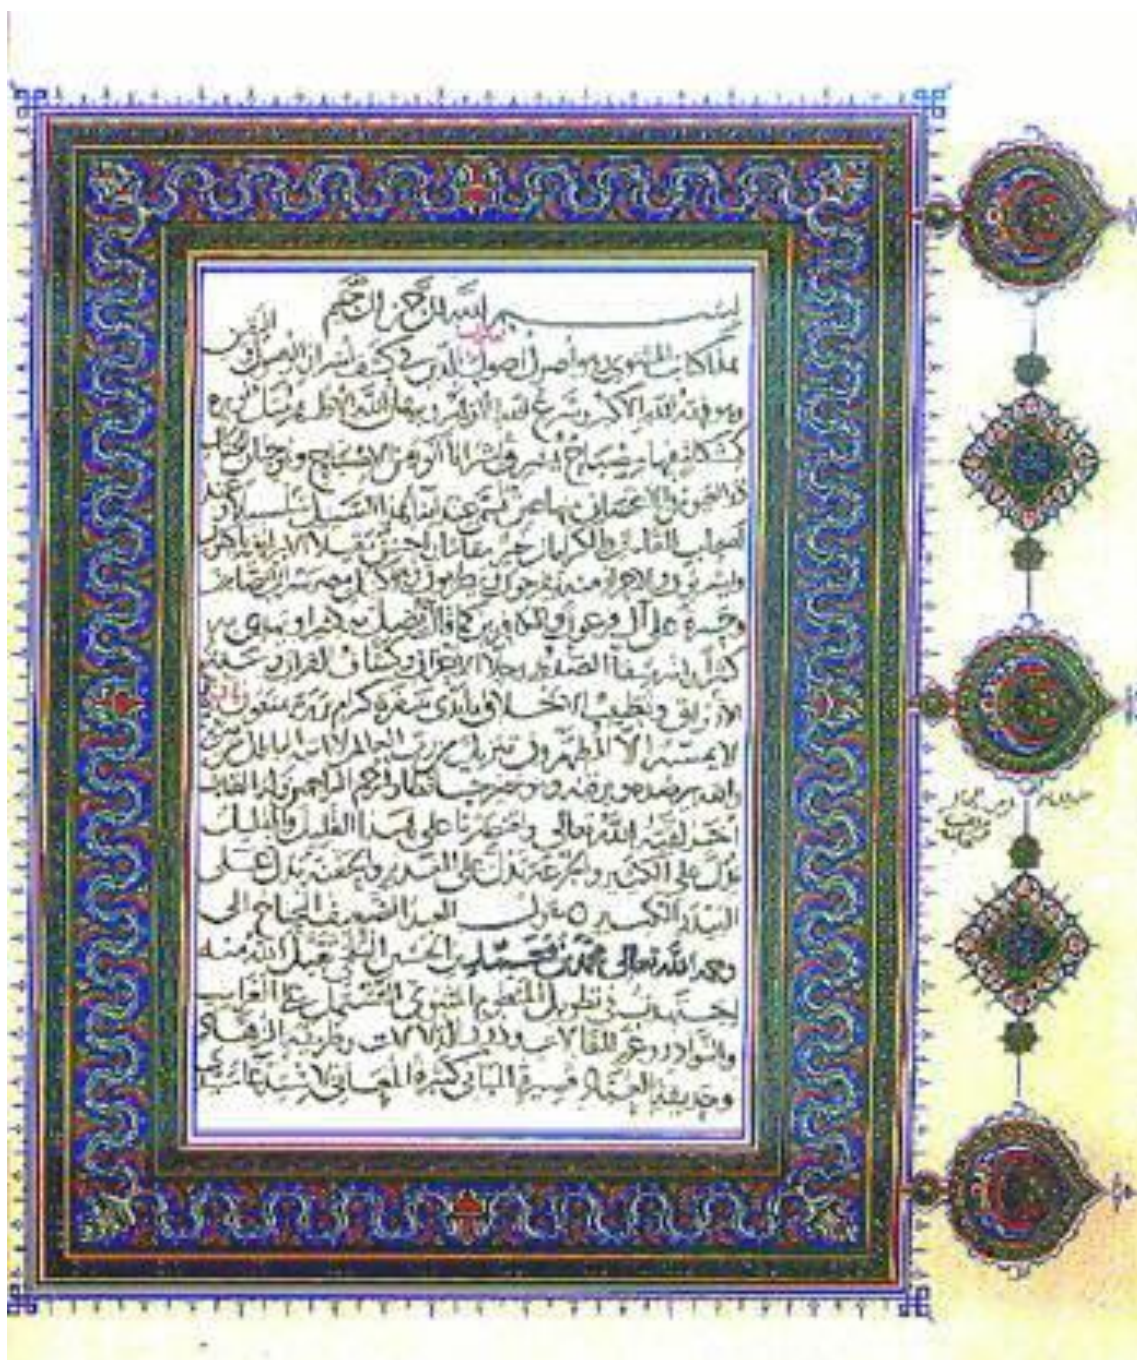 بسم الله الرحمن الرحيم
هذا كتاب المثنوي وهو اصول اصول الدين في كشف اسرار الوصول واليقين
وهو فقه الله الاكبر وشرع الله الازهر وبرهان الله الاظهر مثل نوره
كمشكاة فيها مصباح يشرق اشراقا انور من الاصباح وهو جنان الجنان
ذو العيون والاغصان منها عين تسمى عند ابناء هذا السبيل سلسبيلا وعند
اصحاب المقامات والكرامات خير مقاما واحسن مقيلا الابرار فيه ياكلون
ويشربون والاحرار منه يفرحون ويطربون وهو كنيل مصر شراب للصابرين
وحسرة على آل فرعون والكافرين كما قال يضل به كثيرا ويهدي به
كثيرا وانه شفاء الصدور وجلاء الاحزان وكشاف القرآن وسعة
الارزاق وتطييب الاخلاق بايدي سفرة كرام بررة يمنعون بان
لا يمسه الا المطهرون تنزيل من رب العالمين لا ياتيه الباطل
والله يرصده ويرقبه وهو خير حافظا وهو ارحم الراحمين وله القاب
اخر لقبه الله تعالى واختصرنا على هذا القليل والقليل
يدل على الكثير والجرعة تدل على الغدير والحفنة تدل على
البيدر الكبير يقول العبد الضعيف المحتاج الى
رحمة الله تعالى محمد بن محمد بن الحسين البلخي تقبل الله منه
اجتهدت في تطويل المنظوم المثنوي المشتمل على الغرايب
والنوادر وغرر المقالات ودرر الدلالات وطريقة الزهاد
وحديقة العباد قصيرة المباني كثيرة المعاني لاستدعاء سيدي